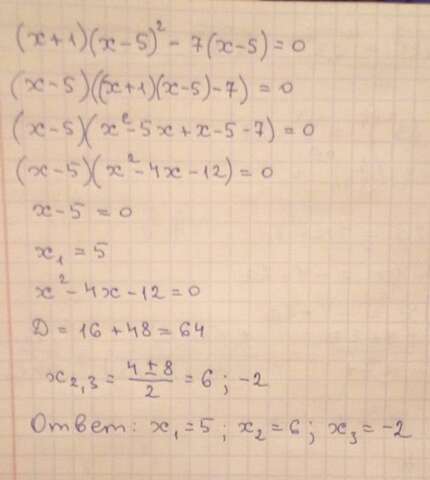 (x+1)(x-5)² - 7(x-5)=0
(x-5)((x+1)(x-5)-7) = 0
(x-5)(x²-5x+x-5-7)=0
(x-5)(x²-4x-12)=0
x-5 = 0
x₁ = 5
x²-4x-12=0
D = 16+48=64
x₂,₃ = (4±8)/2 = 6; -2
Ответ: x₁=5; x₂=6; x₃=-2